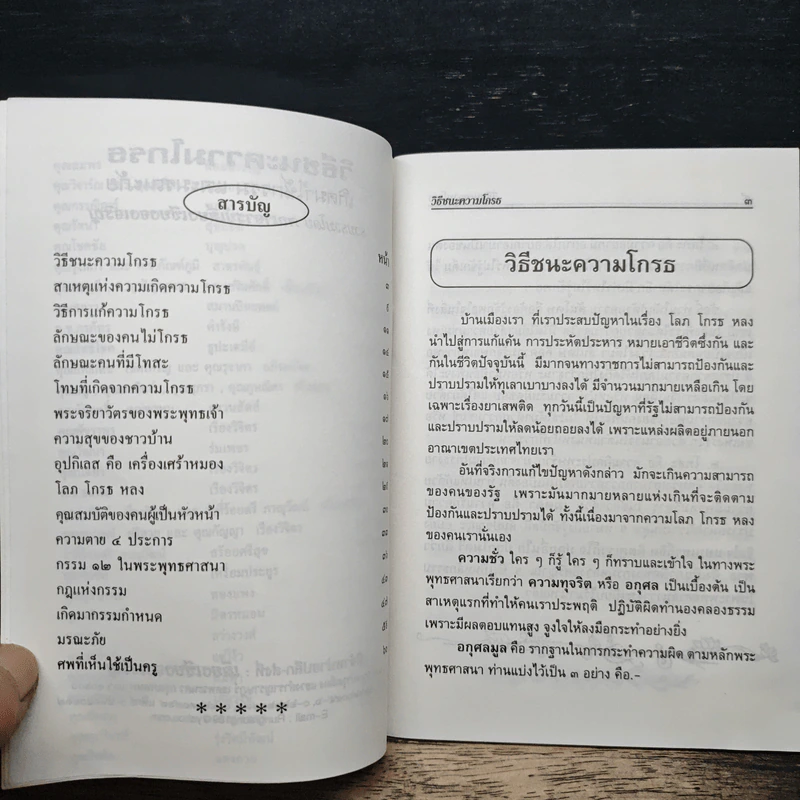 สารบัญ
หน้า
วิธีชนะความโกรธ ๓
สาเหตุแห่งความเกิดความโกรธ
วิธีการแก้ความโกรธ
ลักษณะของคนไม่โกรธ
ลักษณะคนที่มีโทสะ
โทษที่เกิดจากความโกรธ
พระจริยาวัตรของพระพุทธเจ้า
ความสุขของชาวบ้าน
อุปกิเลส คือ เครื่องเศร้าหมอง
โลภ โกรธ หลง
คุณสมบัติของคนผู้เป็นหัวหน้า
ความตาย ๔ ประการ
กรรม ๑๒ ในพระพุทธศาสนา
กฎแห่งกรรม
เกิดมากรรมกำหนด
มรณะภัย
ศพที่เห็นใช้เป็นครู
*****
วิธีชนะความโกรธ ๓
วิธีชนะความโกรธ
บ้านเมืองเรา ที่เราประสบปัญหาในเรื่อง โลภ โกรธ หลง
นำไปสู่การแก้แค้น การประหัตประหาร หมายเอาชีวิตซึ่งกัน และ
กันในชีวิตปัจจุบันนี้ มีมากจนทางราชการไม่สามารถป้องกันและ
ปราบปรามให้ทุเลาเบาบางลงได้ มีจำนวนมากมายเหลือเกิน โดย
เฉพาะเรื่องยาเสพติด ทุกวันนี้เป็นปัญหาที่รัฐไม่สามารถป้องกัน
และปราบปรามให้ลดน้อยถอยลงได้ เพราะแหล่งผลิตอยู่ภายนอก
อาณาเขตประเทศไทยเรา
อันที่จริงการแก้ไขปัญหาดังกล่าว มักจะเกินความสามารถ
ของคนของรัฐ เพราะมันมากมายหลายแห่งเกินที่จะติดตาม
ป้องกันและปราบปรามได้ ทั้งนี้เนื่องมาจากความโลภ โกรธ หลง
ของคนเรานั่นเอง
ความชั่ว ใคร ๆ ก็รู้ ใคร ๆ ก็ทราบและเข้าใจ ในทางพระ
พุทธศาสนาเรียกว่า ความทุจริต หรือ อกุศล เป็นเบื้องต้น เป็น
สาเหตุแรกที่ทำให้คนเราประพฤติ ปฏิบัติผิดทำนองคลองธรรม
เพราะมีผลตอบแทนสูง จูงใจให้ลงมือกระทำอย่างยิ่ง
อกุศลมูล คือ รากฐานในการกระทำความผิด ตามหลักพระ
พุทธศาสนา ท่านแบ่งไว้เป็น ๓ อย่าง คือ.-